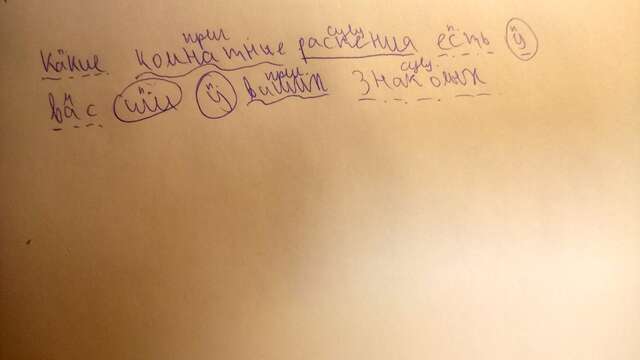 прил сущ
Какие комнатные растения есть у
прил. сущ.
вас или у ваших знакомых